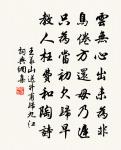 雲無心出未為非
鳥倦方還毋乃遲
只為當初欠歸早
教人枉費和陶詩
王義山送許甫歸九江
詞典網集